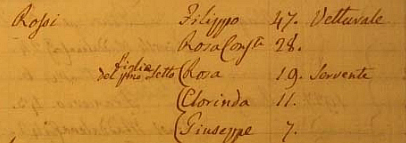 Rossi Filippo 47. Vetturale
Rosa Conste 28.
figlie
del pmo Letto (Rosa 19. Servente
(Clorinda 11.
(Giuseppe 7.